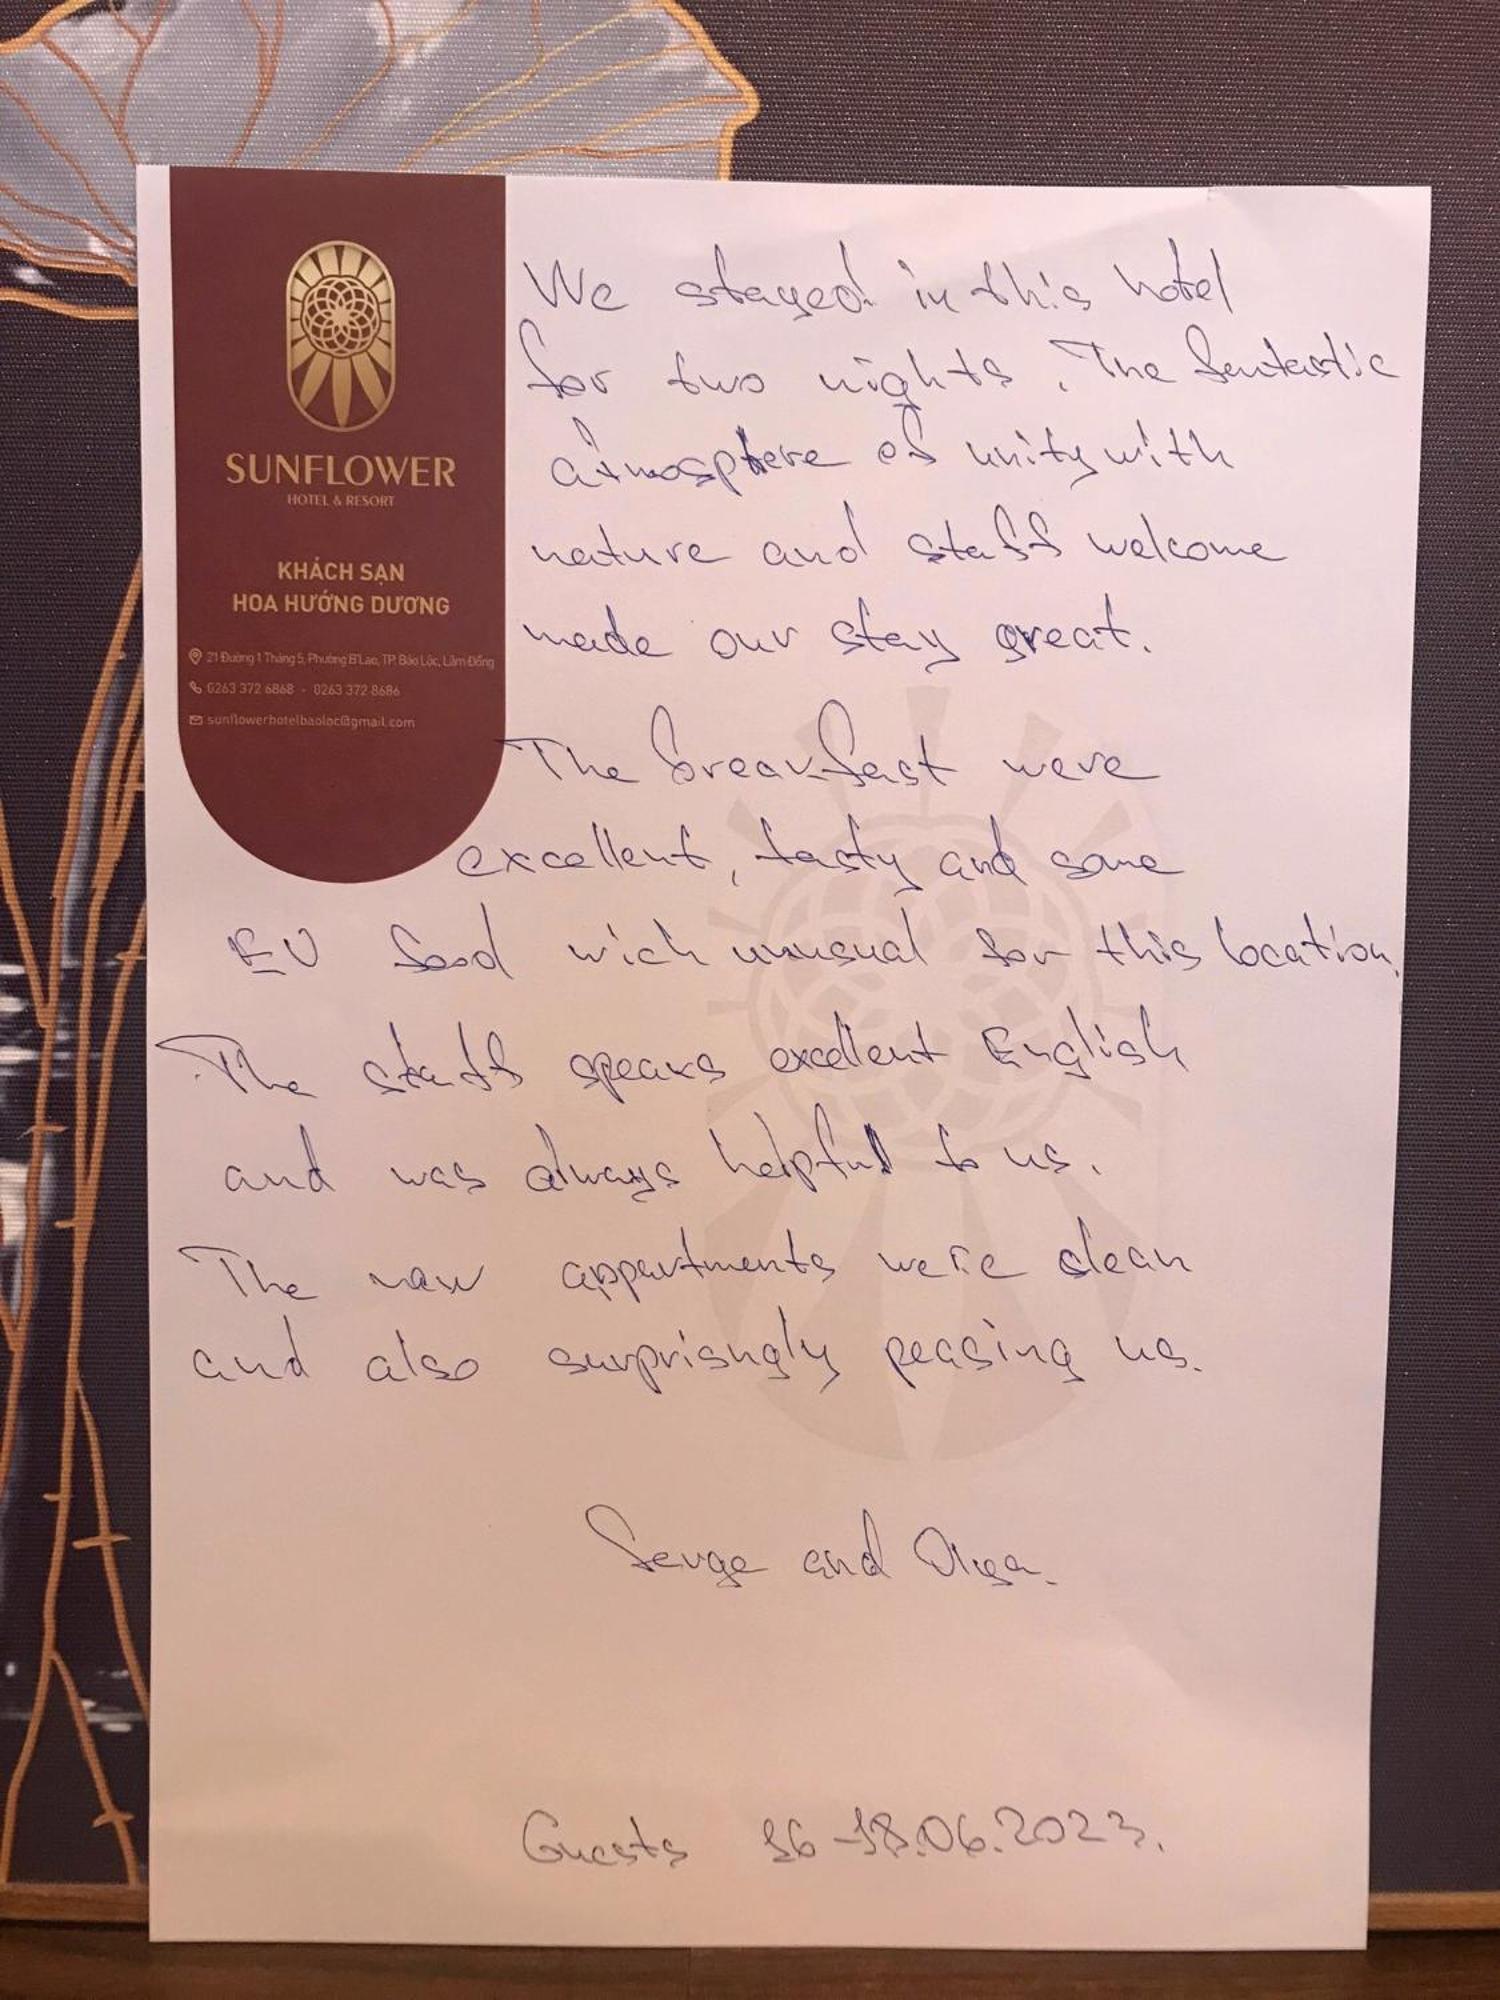 SUNFLOWER
HOTEL & RESORT
KHÁCH SẠN
HOA HƯỚNG DƯƠNG
21 Đường 1 Tháng 5, Phường B'Lao, TP. Bảo Lộc, Lâm Đồng
0263 372 6868 - 0263 372 8686
sunflowerhotelbaoloc@gmail.com
We stayed in this hotel
for two nights. The fantastic
atmosphere of unity with
nature and staff welcome
made our stay great.
The breakfast were
excellent, tasty and some
EU food wich unusual for this location.
The staff speaks excellent English
and was always helpful to us.
The new appartments were clean
and also surprisngly peasing us.
Serge and Olga.
Guests 16-18.06.2023.